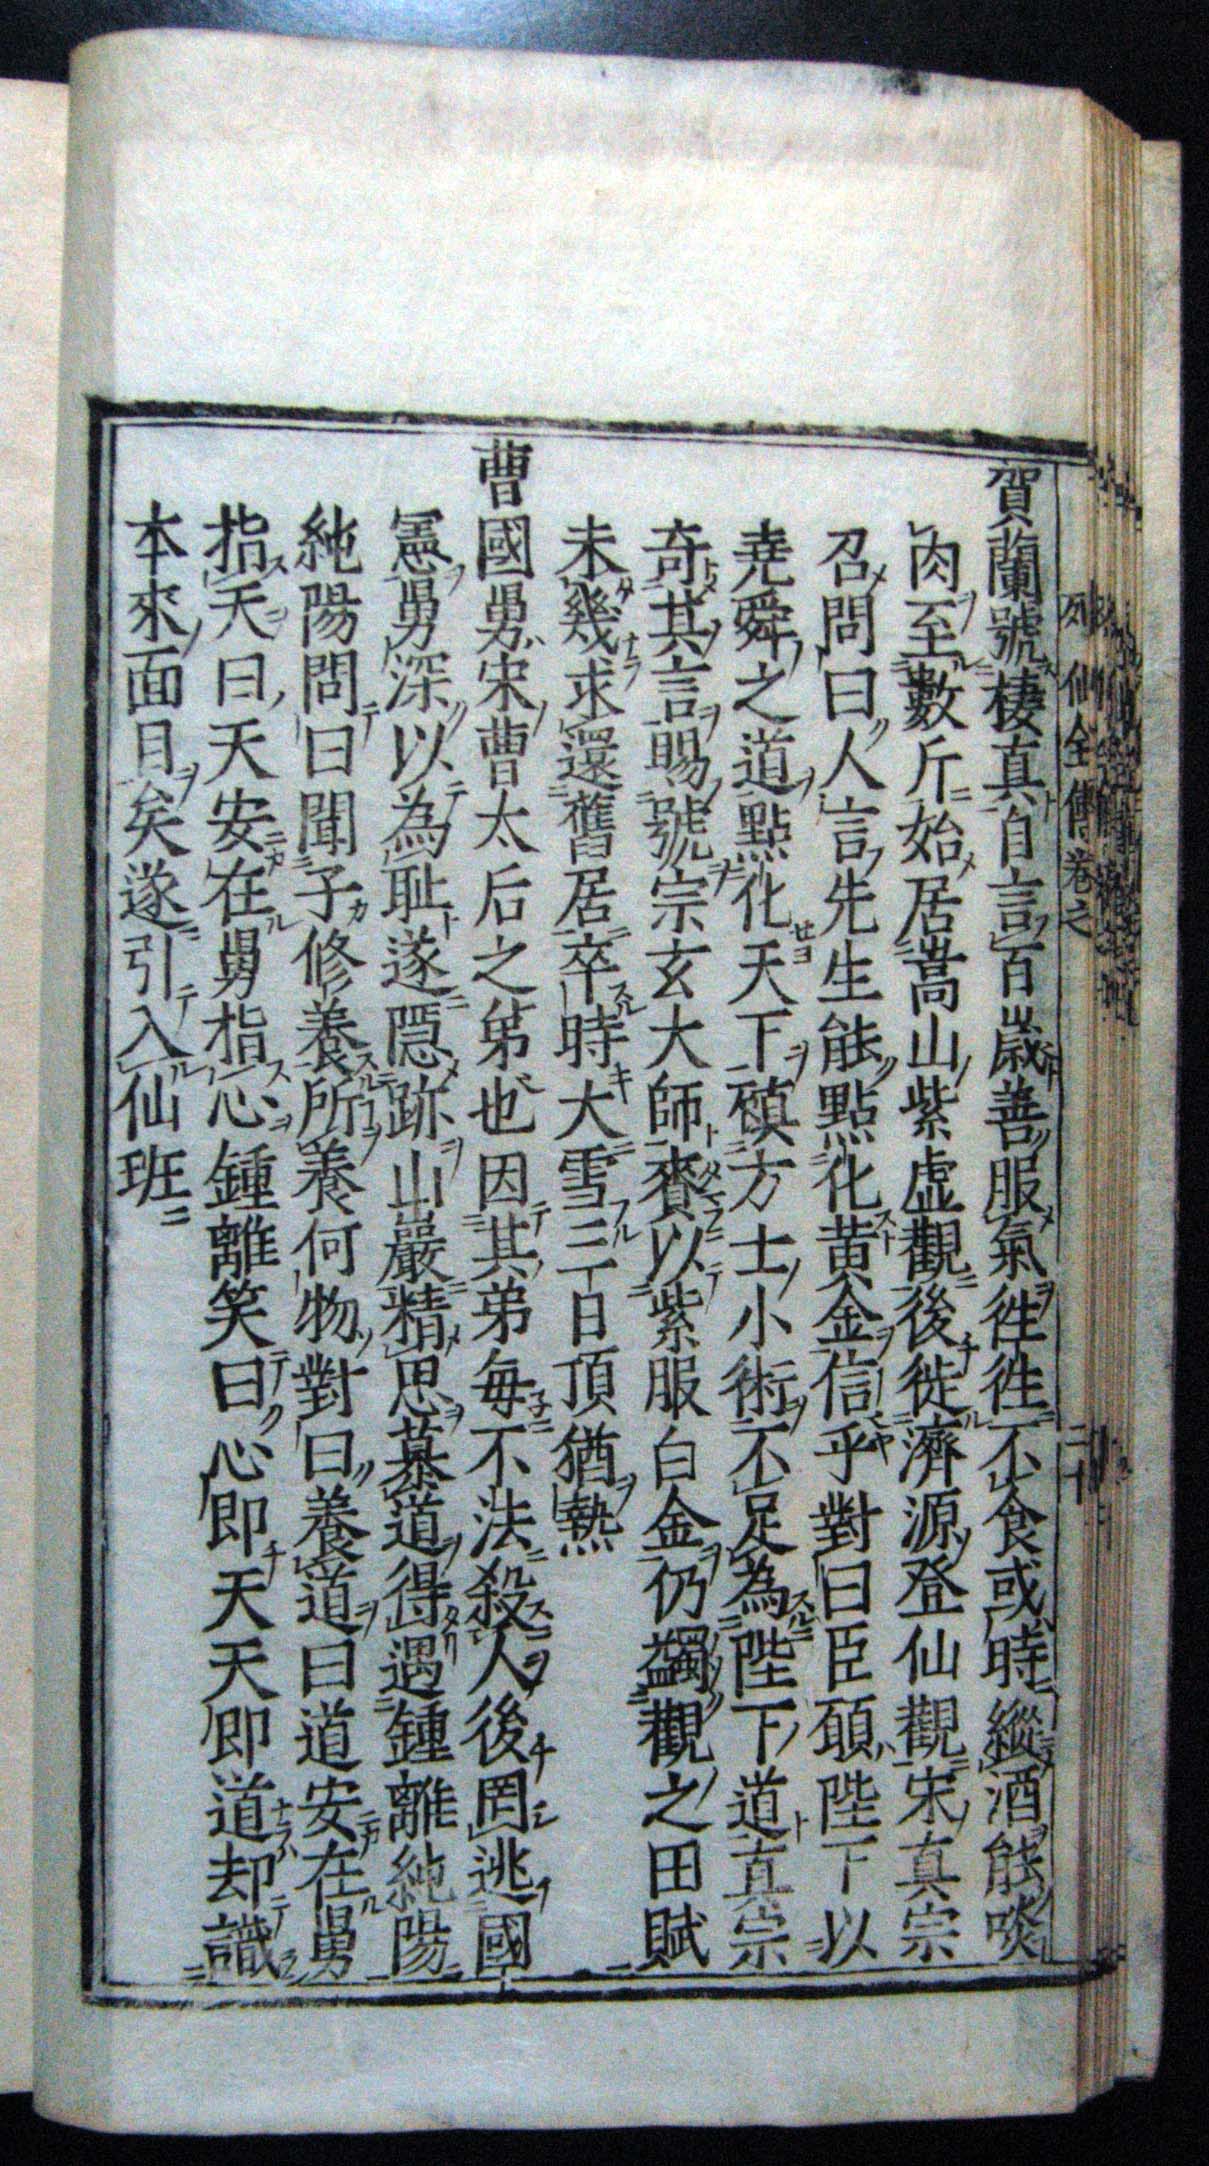 列仙全傳卷之
二十
賀蘭號棲真自言百歳善服氣徃徃不食或時縱酒能啖
肉至數斤始居嵩山紫虛觀後徙濟源登仙觀宋真宗
召問曰人言先生能點化黄金信乎對曰臣願陛下以
堯舜之道點化天下頑方士小術不足為陛下道真宗
奇其言賜號宗玄大師賚以紫服白金仍蠲觀之田賦
未幾求還舊居卒時大雪三日頂猶熱
曹國舅宋曹太后之弟也因其弟毎不法殺人後罔逃國
憲舅深以為耻遂隠跡山巖精思慕道得遇鍾離純陽
純陽問曰聞子修養所養何物對曰養道曰道安在舅
指天曰天安在舅指心鍾離笑曰心即天天即道却識
本來面目矣遂引入仙班